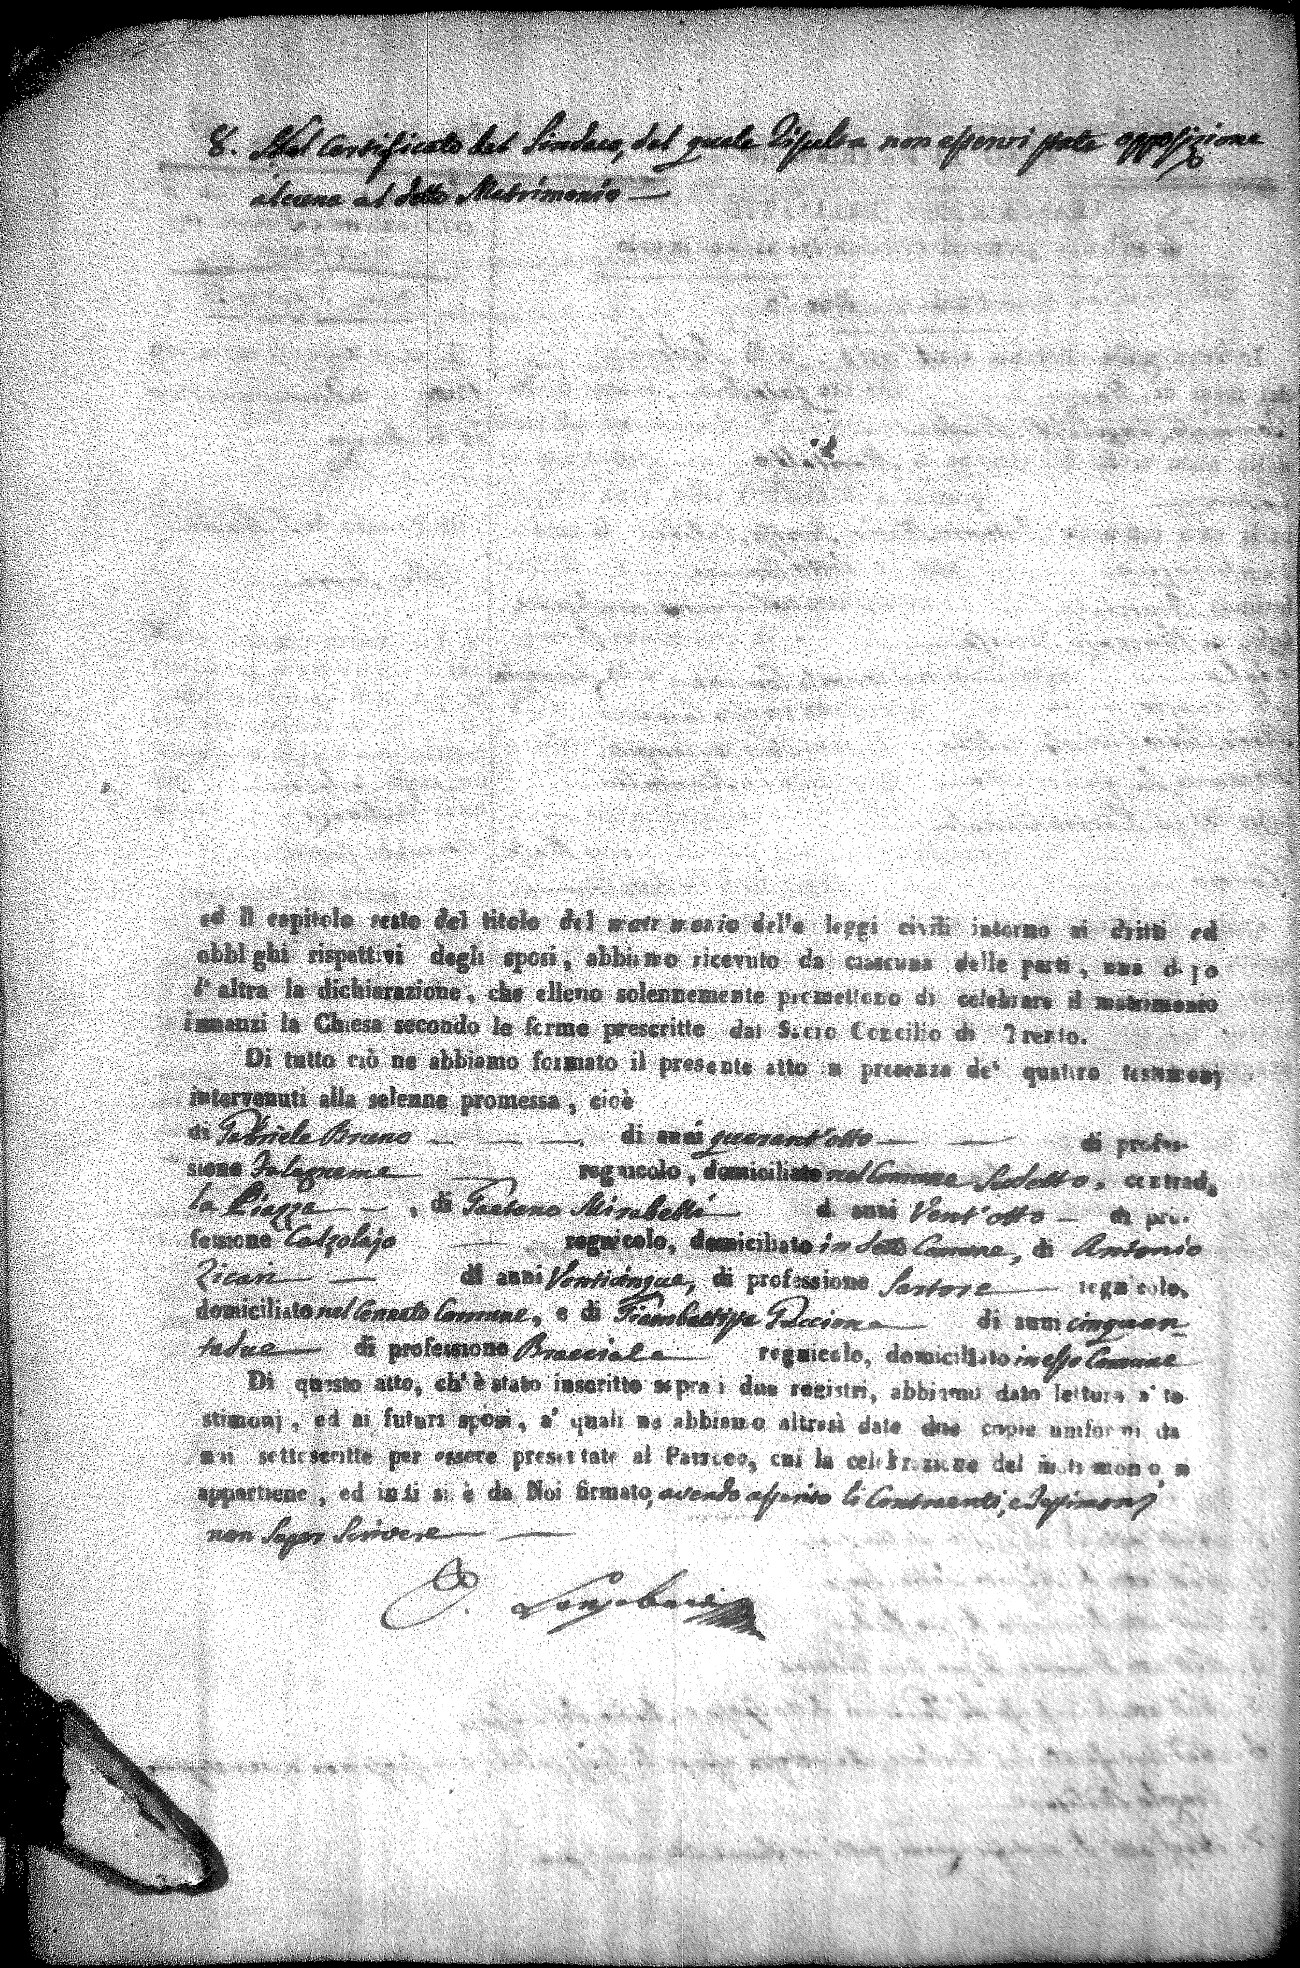 8. Del Certificato del Sindaco, dal quale risulta non essersi fatta opposizione
alcuna al detto Matrimonio —
ed il capitolo sesto del titolo del matrimonio delle leggi civili intorno ai dritti ed
obblighi rispettivi degli sposi, abbiamo ricevuto da ciascuna delle parti, una dopo
l'altra la dichiarazione, che elleno solennemente promettono di celebrare il matrimonio
innanzi la Chiesa secondo le forme prescritte dal Sacro Concilio di Trento.
Di tutto ciò ne abbiamo formato il presente atto in presenza de' quattro testimonj
intervenuti alla solenne promessa, cioè
di Gabriele Bruno — — — di anni quarant'otto — — di profes-
sione Falegname — regnicolo, domiciliato nel Comune Sudetto, contrada
la Piazza — , di Gaetano Mirabelli — di anni Vent'otto — di pro-
fessione Calzolajo — regnicolo, domiciliato in detto Comune, di Antonio
Zicari — — di anni Venticinque, di professione Sartore — regnicolo,
domiciliato nel cennato Comune, e di Giambattista Piccione — di anni cinquan-
tadue — di professione Bracciale — regnicolo, domiciliato in esso Comune
Di questo atto, ch'è stato inscritto sopra i due registri, abbiamo dato lettura a' te-
stimonj, ed ai futuri sposi, a' quali ne abbiamo altresì date due copie uniformi da
noi sottoscritte per essere presentate al Parroco, cui la celebrazione del matrimonio, n
appartiene, ed indi si è da Noi firmato, avendo asserito li Contraenti, e Testimonj
non Saper Scrivere — —
Longobardi